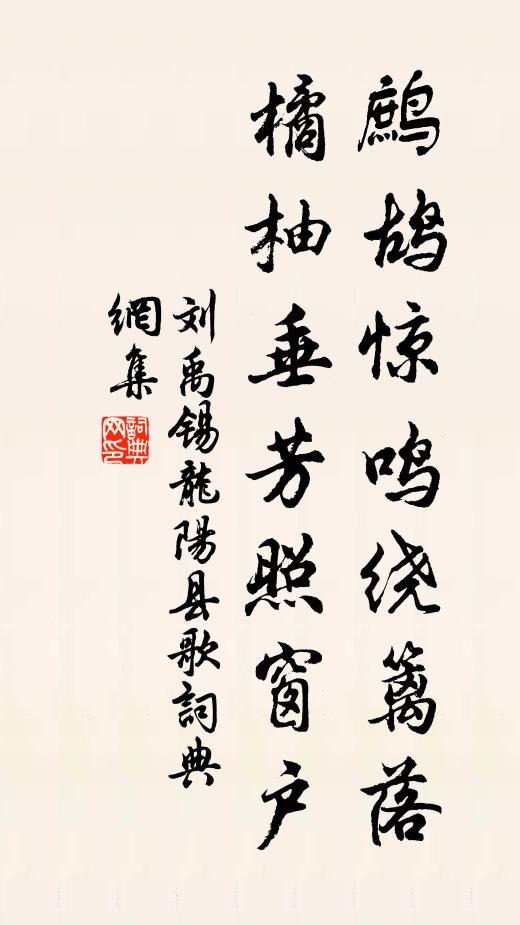 鹧鸪惊鸣绕篱落
橘柚垂芳照窗户
刘禹锡龍陽县歌詞典
網集
詞典
网印